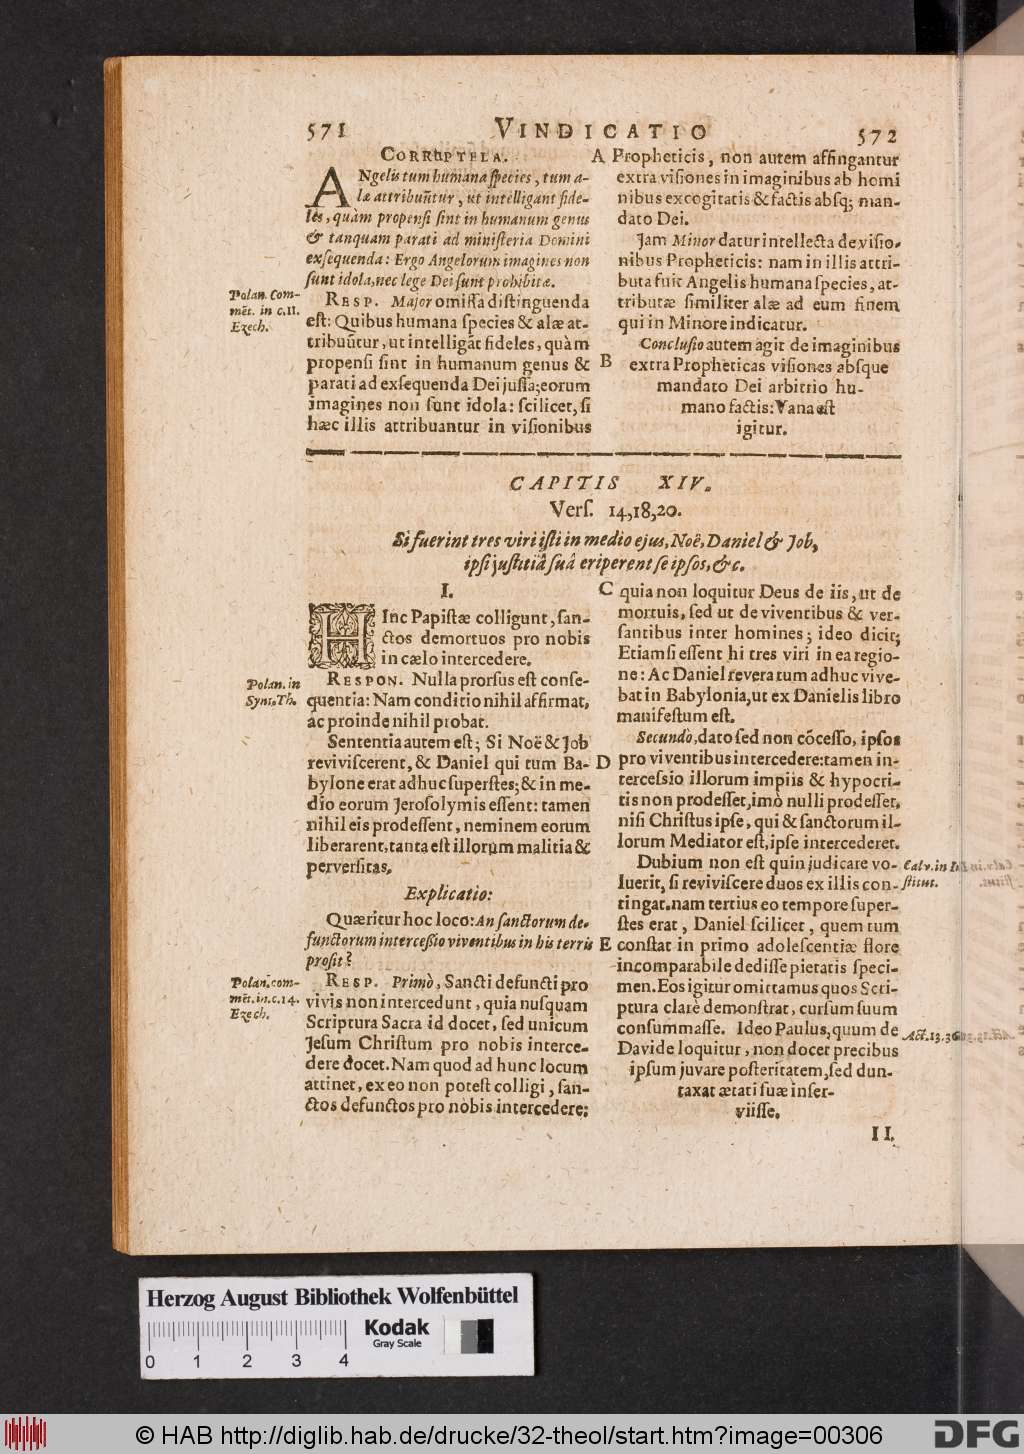 571
VINDICATIO
572
CORRUPTELA.
ANgelis tum humana species, tum a-
læ attribuũtur, ut intelligant fide-
les, quàm propensi sint in humanum genus
& tanquam parati ad ministeria Domini
exsequenda: Ergo Angelorum imagines non
sunt idola, nec lege Dei sunt prohibitæ.
Polan. Com-
mēt. in c. 11.
Ezech.
RESP. Major omissa distinguenda
est: Quibus humana species & alæ at-
tribuũtur, ut intelligãt fideles, quàm
propensi sint in humanum genus &
parati ad exsequenda Dei jussa; eorum
imagines non sunt idola: scilicet, si
hæc illis attribuantur in visionibus
A
Propheticis, non autem affingantur
extra visiones in imaginibus ab homi
nibus excogitatis & factis absq; man-
dato Dei.
Jam Minor datur intellecta de visio-
nibus Propheticis: nam in illis attri-
buta fuit Angelis humana species, at-
tributæ similiter alæ ad eum finem
qui in Minore indicatur.
Conclusio autem agit de imaginibus
B
extra Propheticas visiones absque
mandato Dei arbitrio hu-
mano factis: Vana est
igitur.
CAPITIS XIV.
Vers. 14, 18, 20.
Si fuerint tres viri isti in medio ejus, Noë, Daniel & Job,
ipsi justitiâ suâ eriperent se ipsos, &c.
I.
HInc Papistæ colligunt, san-
ctos demortuos pro nobis
in cælo intercedere.
Polan. in
Synt. Th.
RESPON. Nulla prorsus est conse-
quentia: Nam conditio nihil affirmat,
ac proinde nihil probat.
Sententia autem est; Si Noë & Job
reviviscerent, & Daniel qui tum Ba-
bylone erat adhuc superstes; & in me-
dio eorum Jerosolymis essent: tamen
nihil eis prodessent, neminem eorum
liberarent, tanta est illorum malitia &
perversitas.
Explicatio:
Quæritur hoc loco: An sanctorum de-
functorum intercessio viventibus in his terris
prosit?
Polan. com-
mēt. in. c. 14.
Ezech.
RESP. Primò, Sancti defuncti pro
vivis non intercedunt, quia nusquam
Scriptura Sacra id docet, sed unicum
Jesum Christum pro nobis interce-
dere docet. Nam quod ad hunc locum
attinet, ex eo non potest colligi, san-
ctos defunctos pro nobis intercedere;
C
quia non loquitur Deus de iis, ut de
mortuis, sed ut de viventibus & ver-
santibus inter homines; ideo dicit;
Etiamsi essent hi tres viri in ea regio-
ne: Ac Daniel revera tum adhuc vive-
bat in Babylonia, ut ex Danielis libro
manifestum est.
Secundò, dato sed non cõcesso, ipsos
D
pro viventibus intercedere: tamen in-
tercessio illorum impiis & hypocri-
tis non prodesset, imò nulli prodesset,
nisi Christus ipse, qui & sanctorum il-
lorum Mediator est, ipse intercederet.
Dubium non est quin judicare vo-
luerit, si reviviscere duos ex illis con-
tingat. nam tertius eo tempore super-
stes erat, Daniel scilicet, quem tum
E
constat in primo adolescentiæ flore
incomparabile dedisse pietatis speci-
men. Eos igitur omittamus quos Scri-
ptura clarè demonstrat, cursum suum
consummasse. Ideo Paulus, quum de
Davide loquitur, non docet precibus
ipsum juvare posteritatem, sed dun-
taxat ætati suæ inser-
viisse.
Calv. in I
stitut.
Act. 13. 36
II.
Herzog August Bibliothek Wolfenbüttel
Kodak
Gray Scale
0 1 2 3 4
© HAB http://diglib.hab.de/drucke/32-theol/start.htm?image=00306
DFG